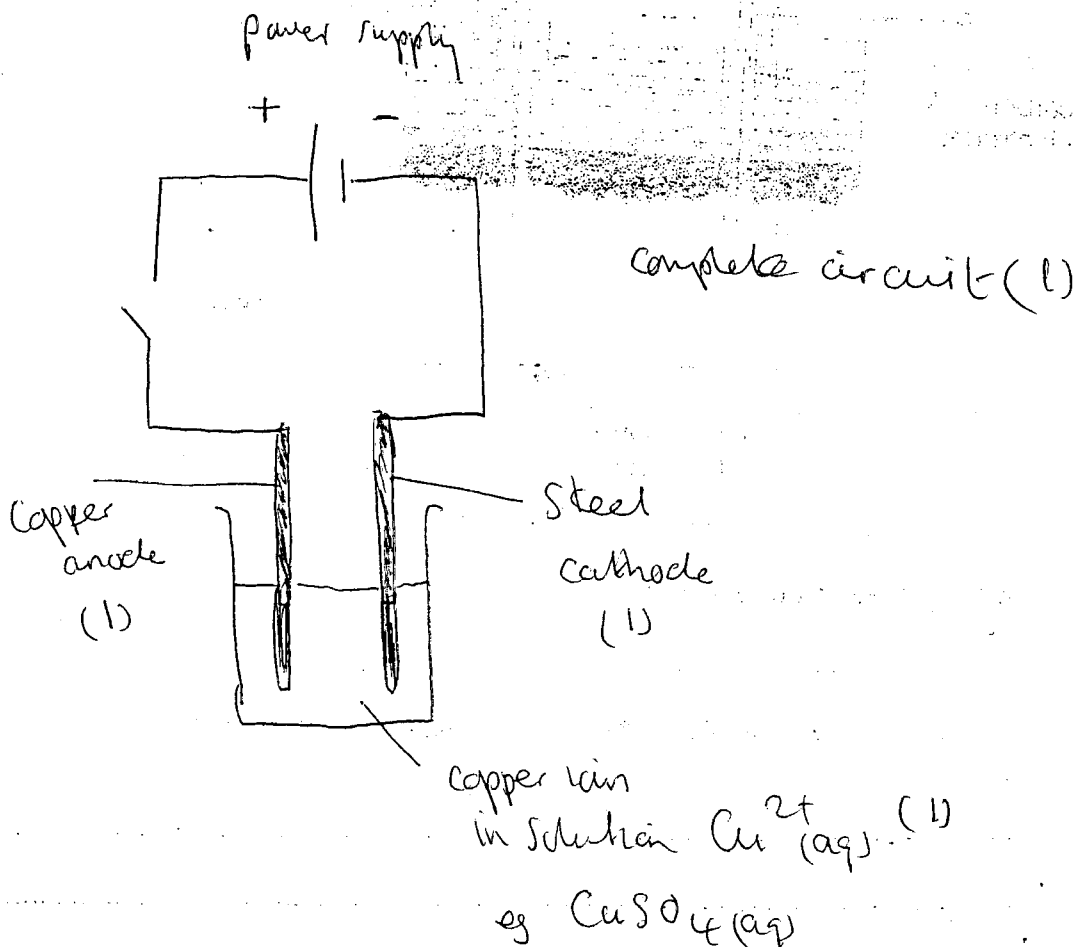 power supply
+ −
complete circuit (1)
Copper
anode
(1)
Steel
cathode
(1)
copper ion
in solution Cu²⁺(aq) (1)
eg CuSO₄(aq)